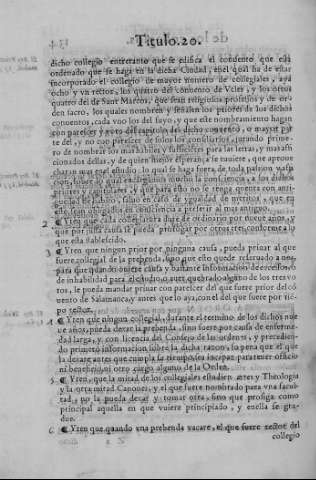 Titulo.20.
dicho collegio entretanto que se edifica el conuento que està
ordenado que se haga en la dicha Ciudad, en el qual ha de estar
incorporado el collegio de mayor numero de collegiales, aya
ocho y vn rector, los quatro del conuento de Vcles, y los otros
quatro del de Sant Marcos, que sean religiosos professos y de or
den sacro, los quales nombren y señalen los priores de los dichos
conuentos, cada vno los del suyo, y que este nombramiento hagan
con parescer y voto del capitulo del dicho conuento, o mayor par
te del, y no con parescer de solos los consiliarios, jurando prime-
ro de nombrar los mas habiles y sufficientes para las letras, y mas affi
cionados dellas, y de quien mejor esperança se tuuiere, que aproue
charan mas en el estudio. lo qual se haga fuera de toda passion
cion, sobre lo qual encargamos mucho las consciencias, a los dichos
priores y capitulares, y que para esto no se tenga cuenta con anti-
guedad del habito, saluo en caso de ygualdad de meritos, que en
este sean obligados en consciencia a preferir al mas antiguo.
2 ¶ Yten que cada collegiatura dure de ordinario por nueue años, y
que por justa causa se pueda prorogar por otros tres conforme a lo
que esta establescido.
3 ¶ Yten que ningun prior, por ninguna causa, pueda priuar al que
fuere collegial de la prebenda, sino que esto quede reseruado a nos,
para que quando ouiere causa y bastante informacion de
de inhabilidad para el estudio, o auer quebrado alguno de los tres vo
tos, le pueda mandar priuar con parescer del que fuere prior del có
uento de Salamanca, y antes que lo aya, con el del que fuere por tié
po rector.
4 ¶ Yten que ningun collegial, durante el termino de los dichos nue
ue años, pueda dexar la prebenda, sino fuere por causa de enferme-
dad larga, y con licencia del Consejo de las ordenes, y precedien-
do primero informacion sobre la dicha razon, so pena que el que
la dexare antes que cumpla su tiempo, sea incapaz para tener officio
ni beneficio, ni otro cargo alguno de la Orden.
5 ¶ Yten, que la mitad de los collegiales estudien artes y Theologia
y la otra mitad Canones, y el que fuere nombrado para vna facul-
tad, no la pueda dexar y tomar otra, sino que prosiga como
principal aquella en que vuiere principiado, y en ella se gra-
due.
6 ¶ Yten que quando vna prebenda vacare, el que fuere rector del
collegio